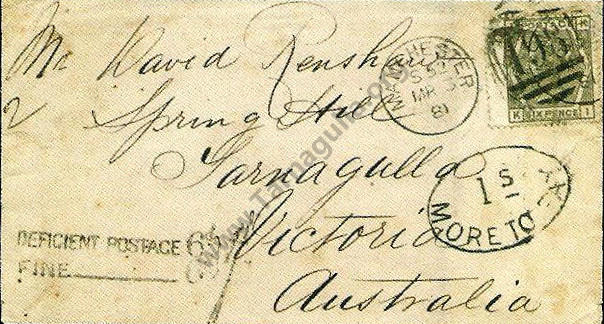 Mr David Renshaw
2 Spring Hill
Tarnagulla
Victoria
Australia
MANCHESTER
MR
81
POSTAGE
K SIX PENCE I
498
1S
MORE TO
DEFICIENT POSTAGE 6d
FINE
www.Tarnagulla.com